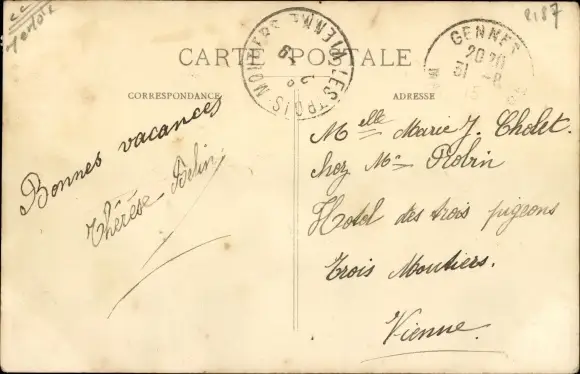 2187
CARTE POSTALE
LES TROIS MOUTIERS VIENNE
GENNES
20 30
31 -8
15
CORRESPONDANCE
ADRESSE
Bonnes vacances
Thérèse
Melle Marie J. Cholet.
chez Mr Robin
Hotel des trois pigeons
Trois Moutiers.
Vienne.